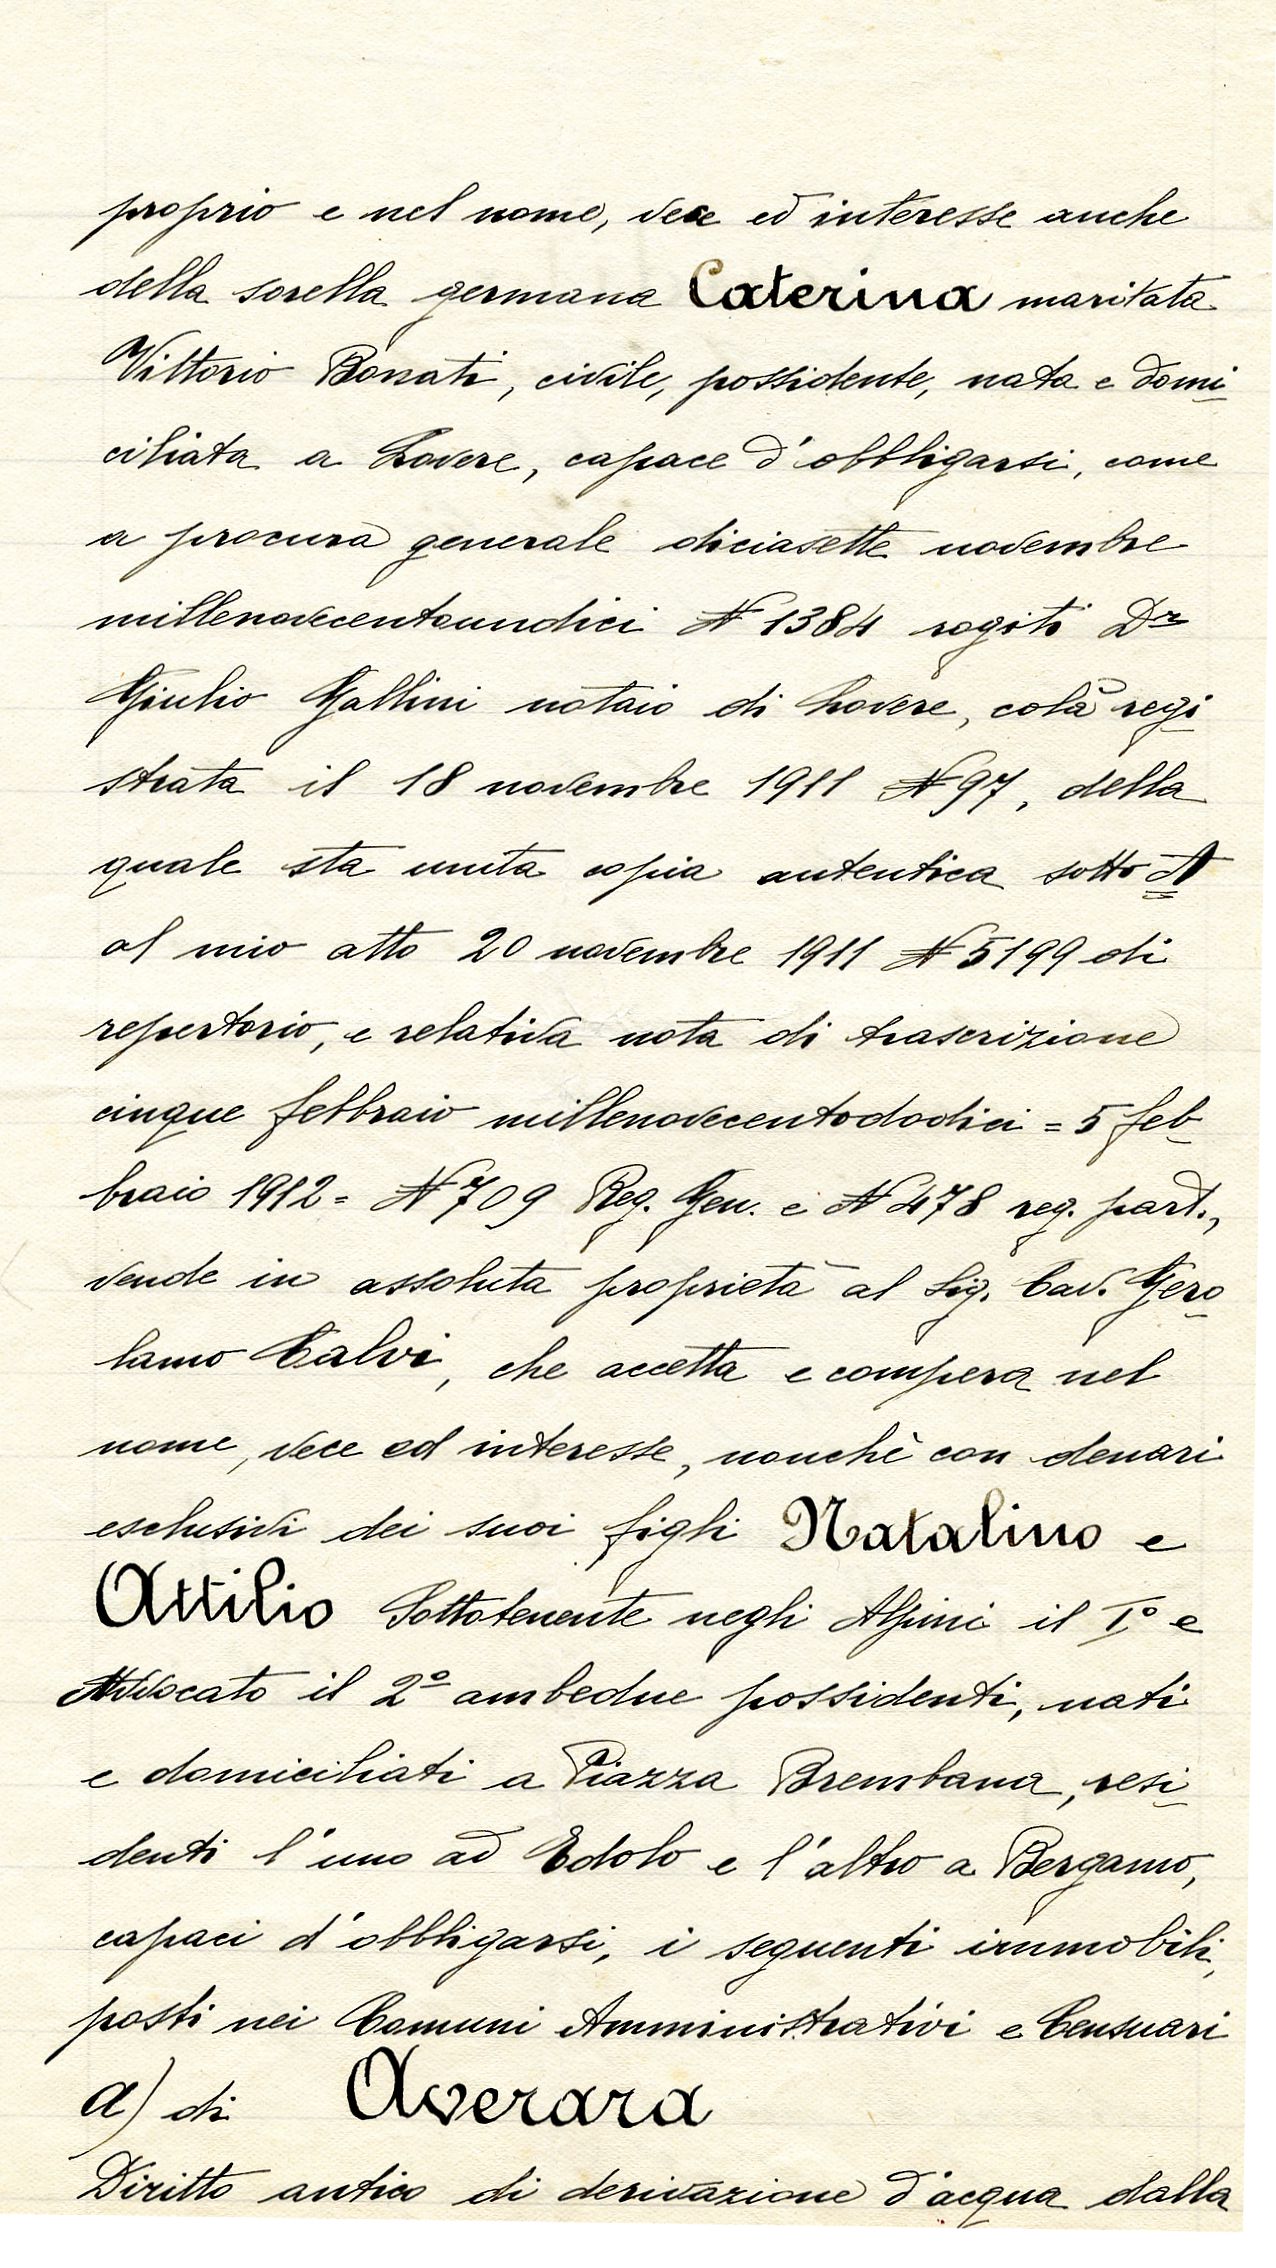 proprio e nel nome, vece ed interesse anche
della sorella germana Caterina maritata
Vittorio Bonati, civile, possidente, nata e domi
ciliata a Lovere, capace d'obbligarsi, come
a procura generale diciasette novembre
millenovecentoundici N 1384 rogiti Dr
Giulio Gallini notaio di Lovere, colà regi
strata il 18 novembre 1911 N 97, della
quale sta unita copia autentica sotto A
al mio atto 20 novembre 1911 N 5199 di
repertorio, e relativa nota di trascrizione
cinque febbraio millenovecentododici = 5 feb
braio 1912 = N 709 Reg. Gen. e N 478 reg. part.,
vende in assoluta proprietà al Sig. Cav. Gero
lamo Calvi, che accetta e compera nel
nome, vece ed interesse, nonchè con denari
esclusivi dei suoi figli Natalino e
Attilio Sottotenente negli Alpini il I° e
Avvocato il 2° ambedue possidenti, nati
e domiciliati a Piazza Brembana, resi
denti l'uno ad Edolo e l'altro a Bergamo,
capaci d'obbligarsi, i seguenti immobili,
posti nei Comuni Amministrativi e Censuari
a) di Averara
Diritto antico di derivazione d'acqua dalla